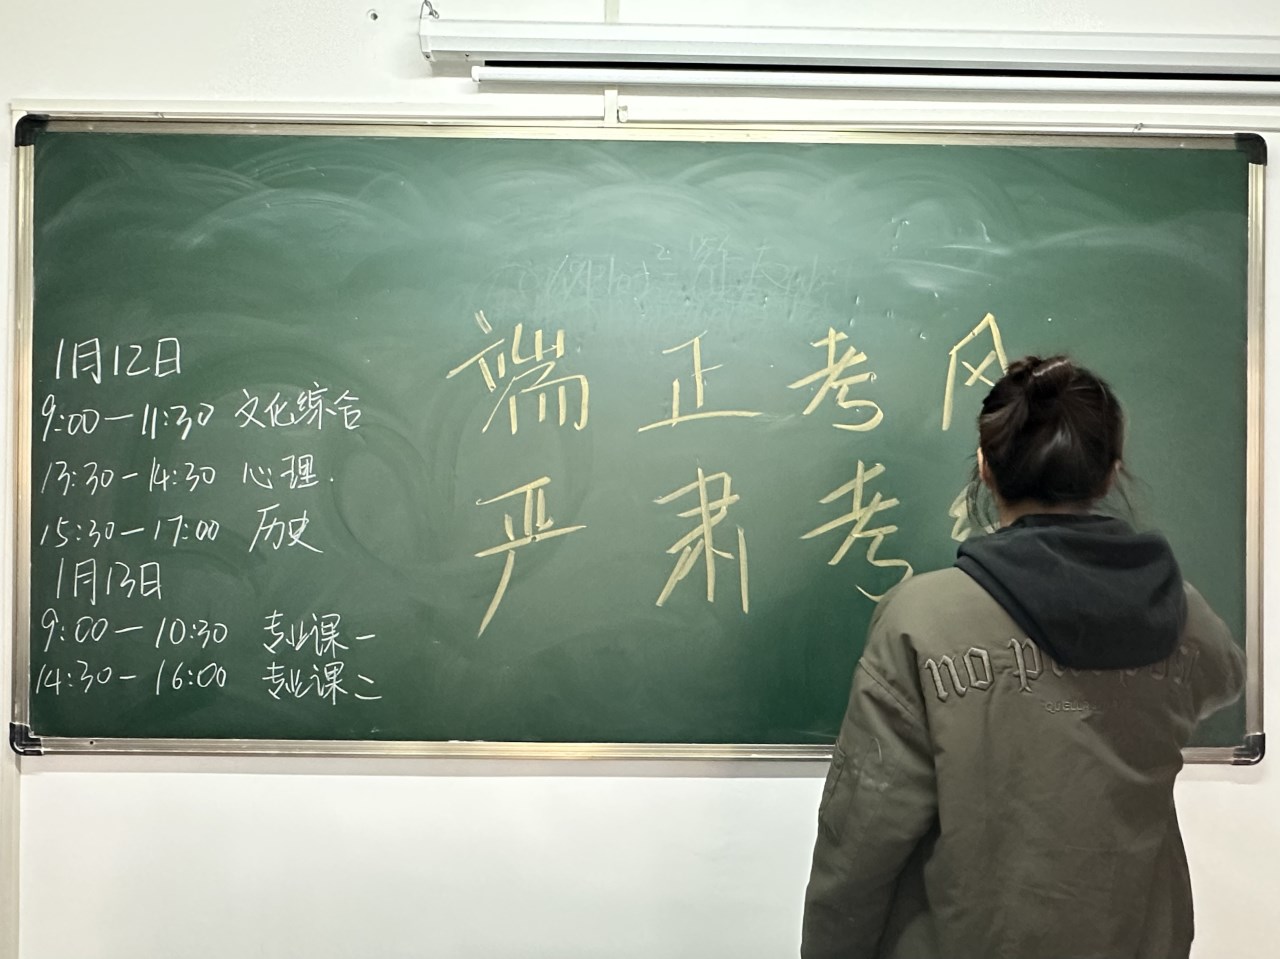 1月12日
9:00—11:30 文化综合
13:30-14:30 心理.
15:30-17:00 历史
1月13日
9:00—10:30 专业课一
14:30-16:00 专业课二
端正考风
严肃考
no p